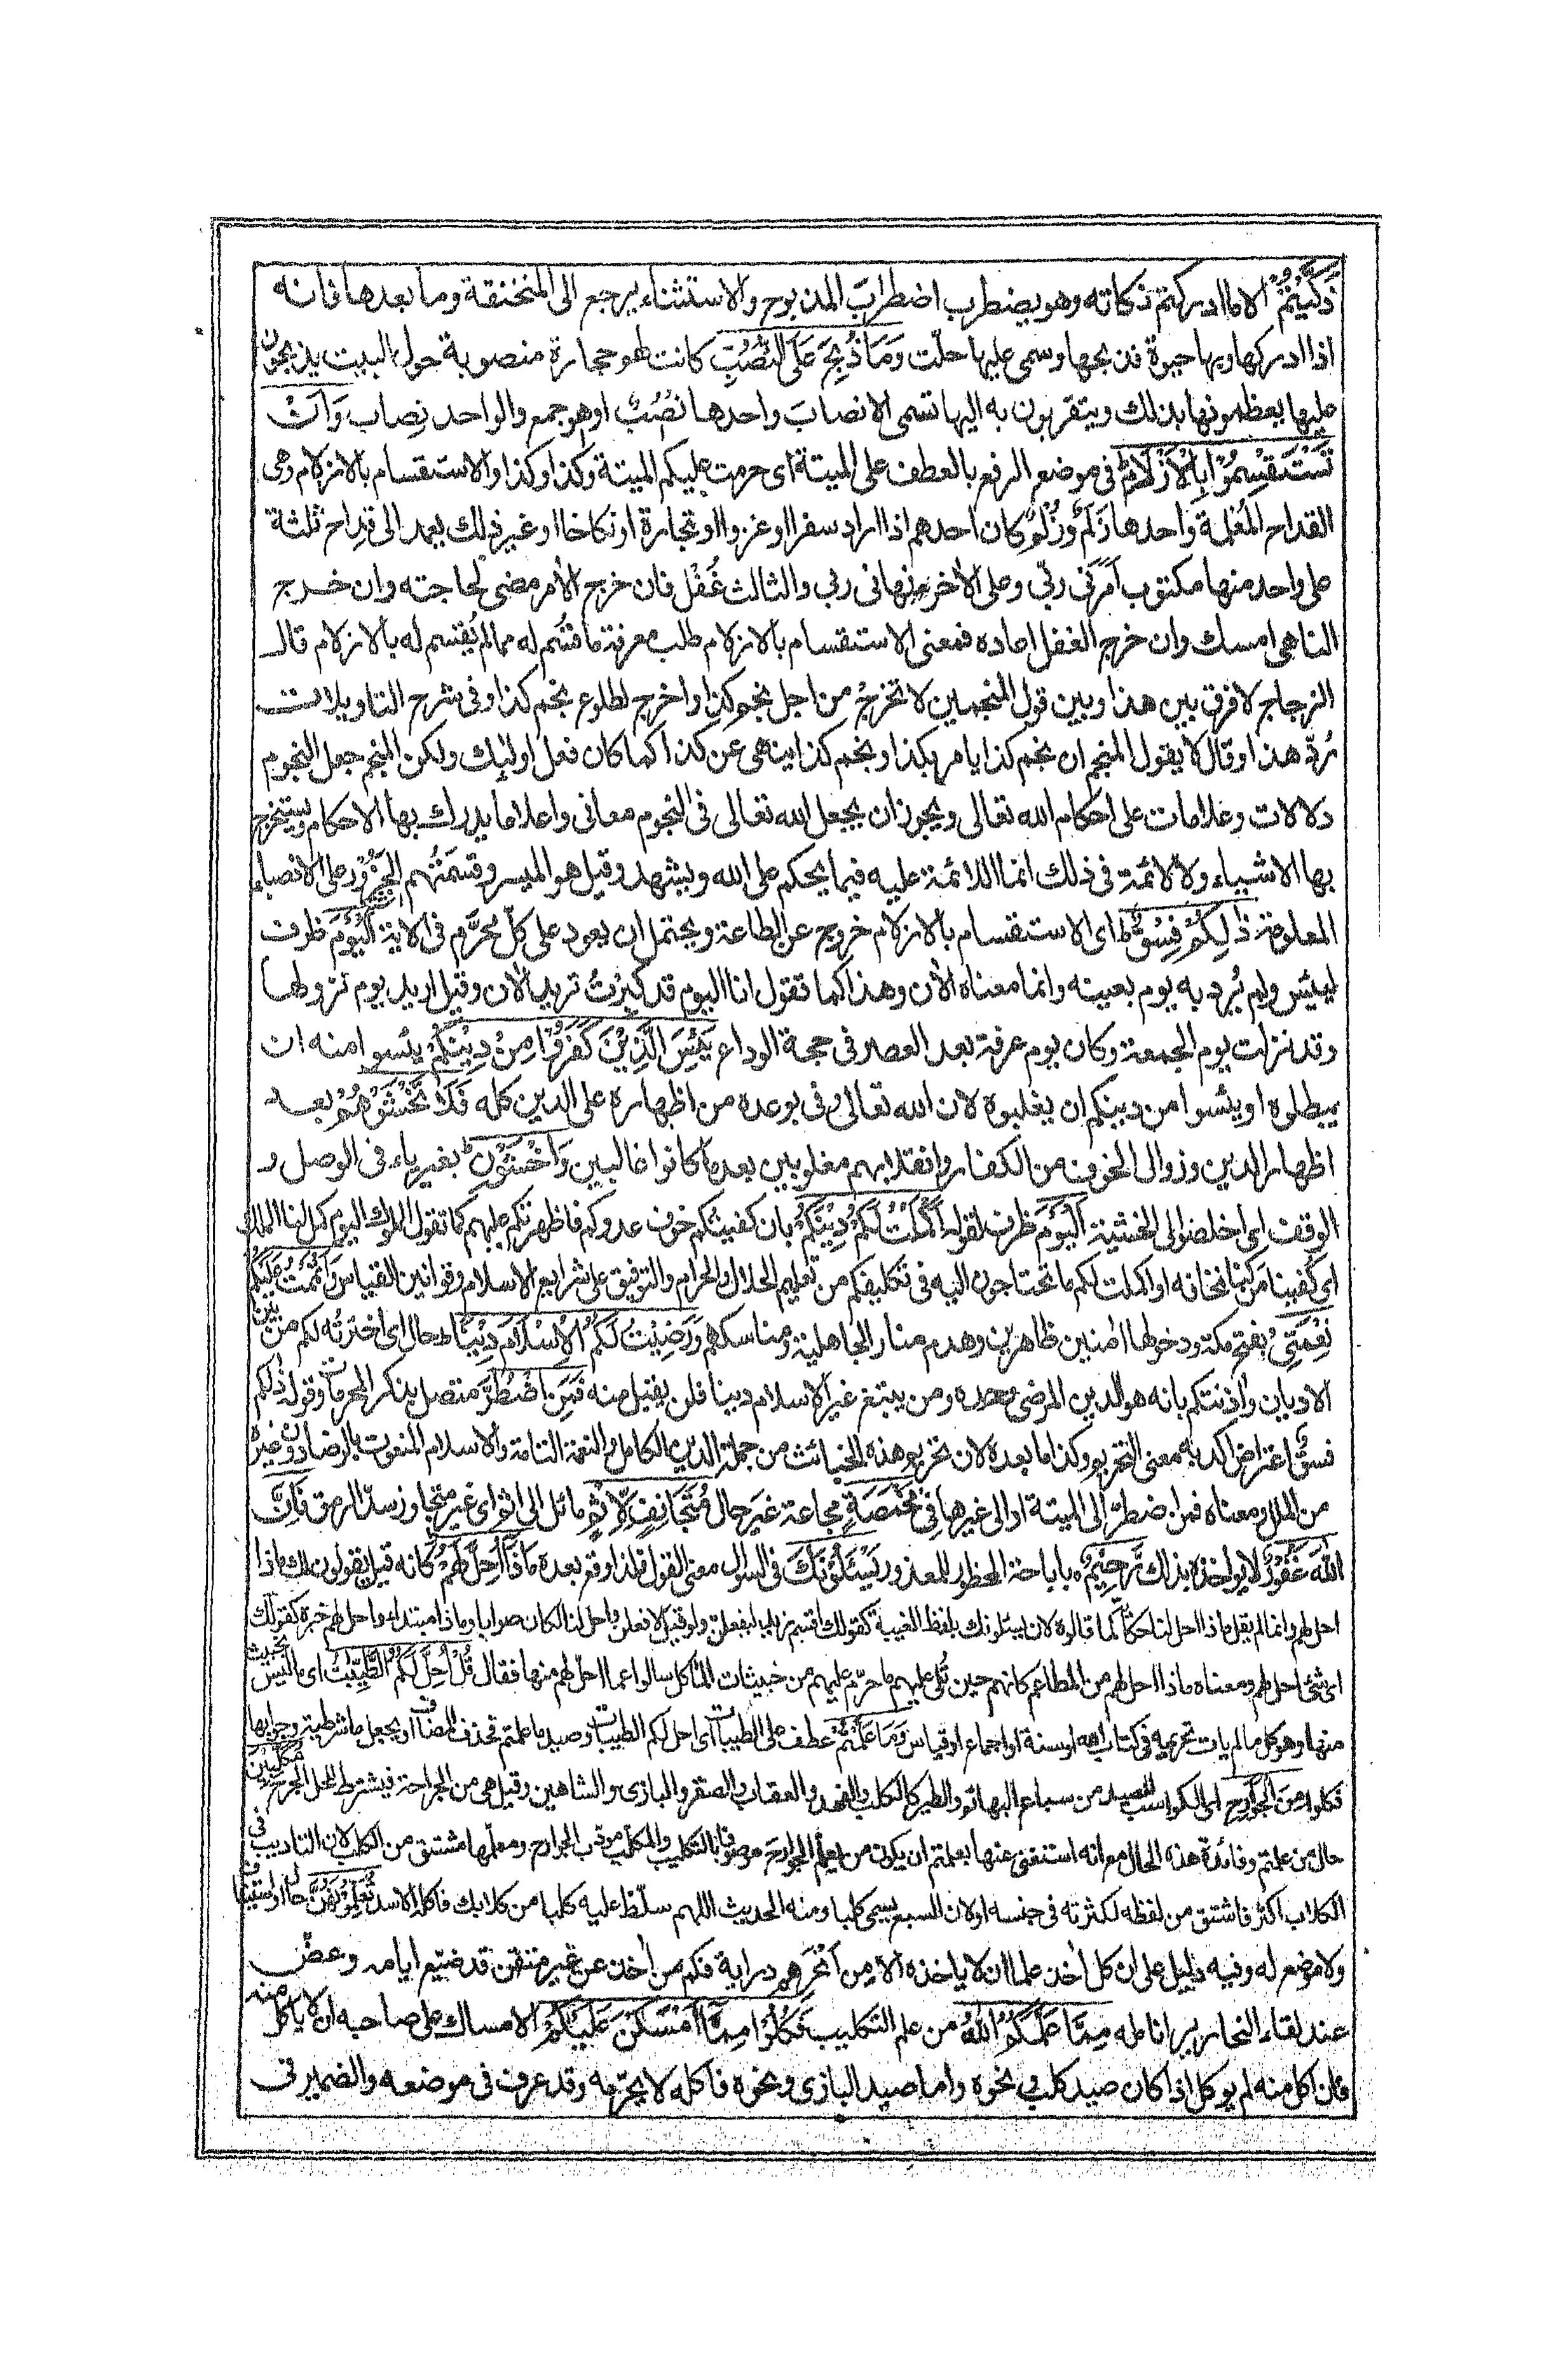 ذَكَّيْتُمْ الا ما ادركتم ذكاته وهو يضطرب اضطرابَ المذبوح والاستثناء يرجع الى المنخنقة وما بعدها فانه
اذا ادركها وبها حيوة فذبحها وسمى عليها حلّت وَمَا ذُبِحَ عَلَى النُّصُبِ كانت لهم حجارة منصوبة حول البيت يذبحون
عليها يعظمونها بذلك ويتقربون به اليها تسمى الانصابَ واحدها نُصُبٌ او هو جمع والواحد نِصاب وَاَنْ
تَسْتَقْسِمُوْا بِالْاَزْلَامِ ط فى موضع الرفع بالعطف على الميتة اى حرمت عليكم الميتة وكذا وكذا والاستقسام بالازلام وهى
القداح المُعْلمة واحدها زَلَم وَزُلَم كان احدهم اذا اراد سفرا او غزوا او تجارة او نكاحا او غير ذلك يعمد الى قداح ثلثة
على واحد منها مكتوب اَمَرَنى ربّى وعلى الاٰخر نهانى ربى والثالث غُفْل فان خرج الاٰمر مضى لحاجته وان خرج
الناهى امسك وان خرج الغفل اعاده فمعنى الاستقسام بالازلام طلب معرفة ما قُسِم له مما لم يُقْسم له بالازلام قال
الزجاج لا فرق بين هذا وبين قول المنجمين لا تخرجْ من اجل نجم كذا واخرج لطلوع نجم كذا وفى شرح التاويلات
رُدّ هذا وقال لا يقول المنجم ان نجم كذا يامر بكذا ونجم كذا ينهى عن كذا كما كان فعل اولٰئِك ولكن المنجم جعل النجوم
دلالات وعلامات على احكام الله تعالى ويجوز ان يجعل الله تعالى فى النجوم معانى واعلاما يدرك بها الاحكام ويستخرج
بها الاشياء ولا لائمة فى ذلك انما اللائمة عليه فيما يحكم على الله ويشهد وقيل هو الميسر وقسمَتُهم الجَزُوْرَ على الانصباء
المعلومة ذٰلِكُمْ فِسْقٌ ط اى الاستقسام بالازلام خروج عن الطاعة ويحتمل ان يعود على كلّ مُحَرَّم فى الاٰية اَلْيَوْمَ ظرف
ليئس ولم يُرد به يوم بعينه وانما معناه الاٰن وهذا كما تقول انا اليوم قد كَبِرْتُ تريد الاٰن وقيل اريد يوم نزولها
وقد نزلت يوم الجمعة وكان يوم عرفة بعد العصر فى حجة الوداع يَئِسَ الَّذِيْنَ كَفَرُوْا مِنْ دِيْنِكُمْ يئسوا منه ان
يبطلوه او يئسوا من دينكم ان يغلبوه لان الله تعالى وفى بوعده من اظهاره على الدين كله فَلَا تَخْشَوْهُمْ بعد
اظهار الدين وزوال الخوف من الكفار وانقلابهم مغلوبين بعد ما كانوا غالبين وَاخْشَوْنِ ط بغير ياء فى الوصل و
الوقف اى اخلصوا لى الخشية اَلْيَوْمَ ظرف لقوله اَكْمَلْتُ لَكُمْ دِيْنَكُمْ بان كفيتكم خوف عدوكم فاظهرتكم عليهم كما تقول الملوك اليوم كمل لنا الملك
اى كُفينا من كنا نخافه او اكملت لكم ما تحتاجون اليه فى تكليفكم من تعليم الحلال والحرام والتوفيق على شرايع الاسلام وقوانين القياس وَاَتْمَمْتُ عَلَيْكُمْ
نِعْمَتِىْ بفتح مكة ودخولها اٰمنين ظاهرين وهدم منار الجاهلية ومناسكهم وَرَضِيْتُ لَكُمُ الْاِسْلَامَ دِيْنًا ط حال اى اخترته لكم من بين
الاديان واٰذنتكم بانه هو الدين المرضى وحده ومن يبتغ غير الاسلام دينا فلن يقبل منه فَمَنِ اضْطُرَّ متصل بذكر المحرمات وقوله ذلكم
فسق اعتراض اكد به معنى التحريم وكذا ما بعده لان تحريم هذه الخبائث من جملة الدين الكامل والنعمة التامة والاسلام المنعوت بالرضا دون غيره
من الملل ومعناه فمن اضطرّ الى الميتة او الى غيرها فِىْ مَخْمَصَةٍ مجاعة غَيرَ حال مُتَجَانِفٍ لِّاِثْمٍ مائل الى اثم اى غير متجاوز سدّ الرمق فَاِنَّ
اللّٰهَ غَفُوْرٌ لا يؤاخذه بذلك رَّحِيْمٌ ه باباحة المحظور للمعذور يَسْئَلُوْنَكَ فى السوال معنى القول فلذا وقع بعده مَاذَا اُحِلَّ لَهُمْ كانه قيل يقولون لك ماذا
احل لهم وانما لم يقل ماذا احل لنا حكايةً لما قالوه لان يسئلونك بلفظ الغيبة كقولك اقسم زيد ليفعلن ولو قيل لافعلن واحل لنا لكان صوابا وماذا مبتدا واحل لهم خبره كقولك
اى شئ احل لهم ومعناه ماذا احل لهم من المطاعم كانهم حين تُلى عليهم ما حرّم عليهم من خبيثات المآكل سالوا عما احلّ لهم منها فقال قُلْ اُحِلَّ لَكُمُ الطَّيِّبٰتُ اى ما ليس بخبيث
منها وهو كل ما لم يات تحريمه فى كتاب الله او سنة او اجماع او قياس وَمَا عَلَّمْتُمْ عطف على الطيبات اى احل لكم الطيبات وصيد ما علمتم فحذف المضاف او يجعل ما شرطية وجوابها
فكلوا مِنَ الْجَوَارِحِ اى الكواسب للصيد من سباع البهائم والطير كالكلب والفهد والعقاب والصقر والبازى والشاهين وقيل هى من الجراحة فيشترط للحل الجرح مُكَلِّبِيْنَ
حال من علمتم وفائدة هذه الحال مع انه استغنى عنها بعلمتم ان يكون من يعلم الجوارح موصوفا بالتكليب والمكلّب مؤدب الجوارح ومعلمها مشتق من الكلب لان التاديب فى
الكلاب اكثر فاشتق من لفظه لكثرته فى جنسه او لان السبع يسمى كلبا ومنه الحديث اللهم سلّط عليه كلبا من كلابك فاكله الاسد تُعَلِّمُوْنَهُنَّ حال او استيناف
ولا موضع له وفيه دليل على ان كل اٰخذ علما ان لا ياخذه الا من اَنْحَرِهم دراية فكم من اٰخذ عن غير متقن قد ضيّع ايامه وعضّ
عند لقاء النحارير انامله مِمَّا عَلَّمَكُمُ اللّٰهُ من علم التكليب فَكُلُوْا مِمَّا اَمْسَكْنَ عَلَيْكُمْ الامساك على صاحبه ان لا ياكل منه
فان اكل منه لم يوكل اذا كان صيد كلب ونحوه واما صيد البازى ونحوه فاكله لا يحرّمه وقد عرف فى موضعه والضمير فى